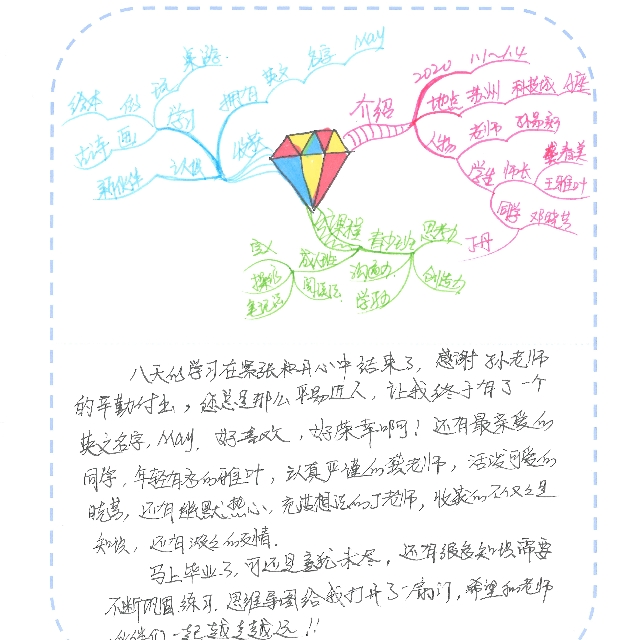 桌游
绘本 作 词
学习
古诗 画
新伙伴 认识
收获
拥有 英文 名字 May
介绍
2020 1.1~1.4
地点 苏州 科技城 A座
人物 老师 孙易新
学生 师长 龚春美
王雅叶
同学 邓晓莹
丁丹
课程
青少班 思考力
沟通力 创造力
学习力
成人班
定义
操作
笔记法 阅读法
八天的学习在紧张和开心中结束了，感谢孙老师
的辛勤付出，您总是那么平易近人，让我终于有了一个
英文名字，May，好喜欢，好荣幸啊！还有最亲爱的
同学，年轻有为的雅叶，认真严谨的龚老师，活泼可爱的
晓莹，还有幽默热心、充满想法的丁老师，收获的不仅仅是
知识，还有深深的友情。
马上毕业了，可还是意犹未尽，还有很多知识需要
不断巩固练习，思维导图给我打开了一扇门，希望和老师
伙伴们一起越走越远！！